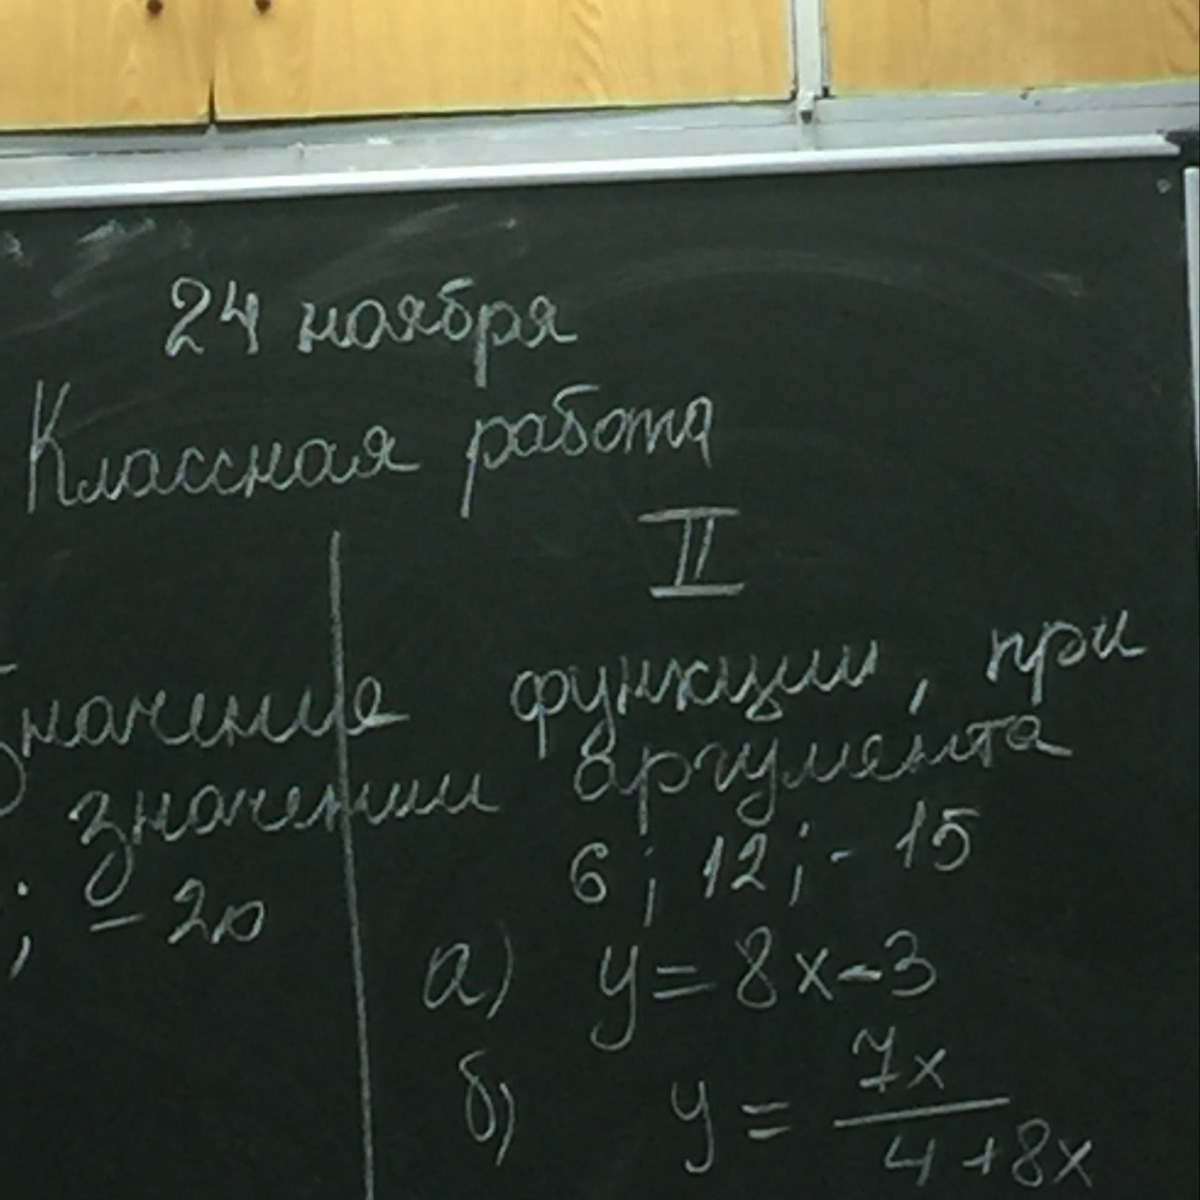 24 ноября
Классная работа
II
Значение функции, при
значении аргумента
6; 12; - 15
; - 20
а) y = 8x - 3
б) y = 7x / 4 + 8x